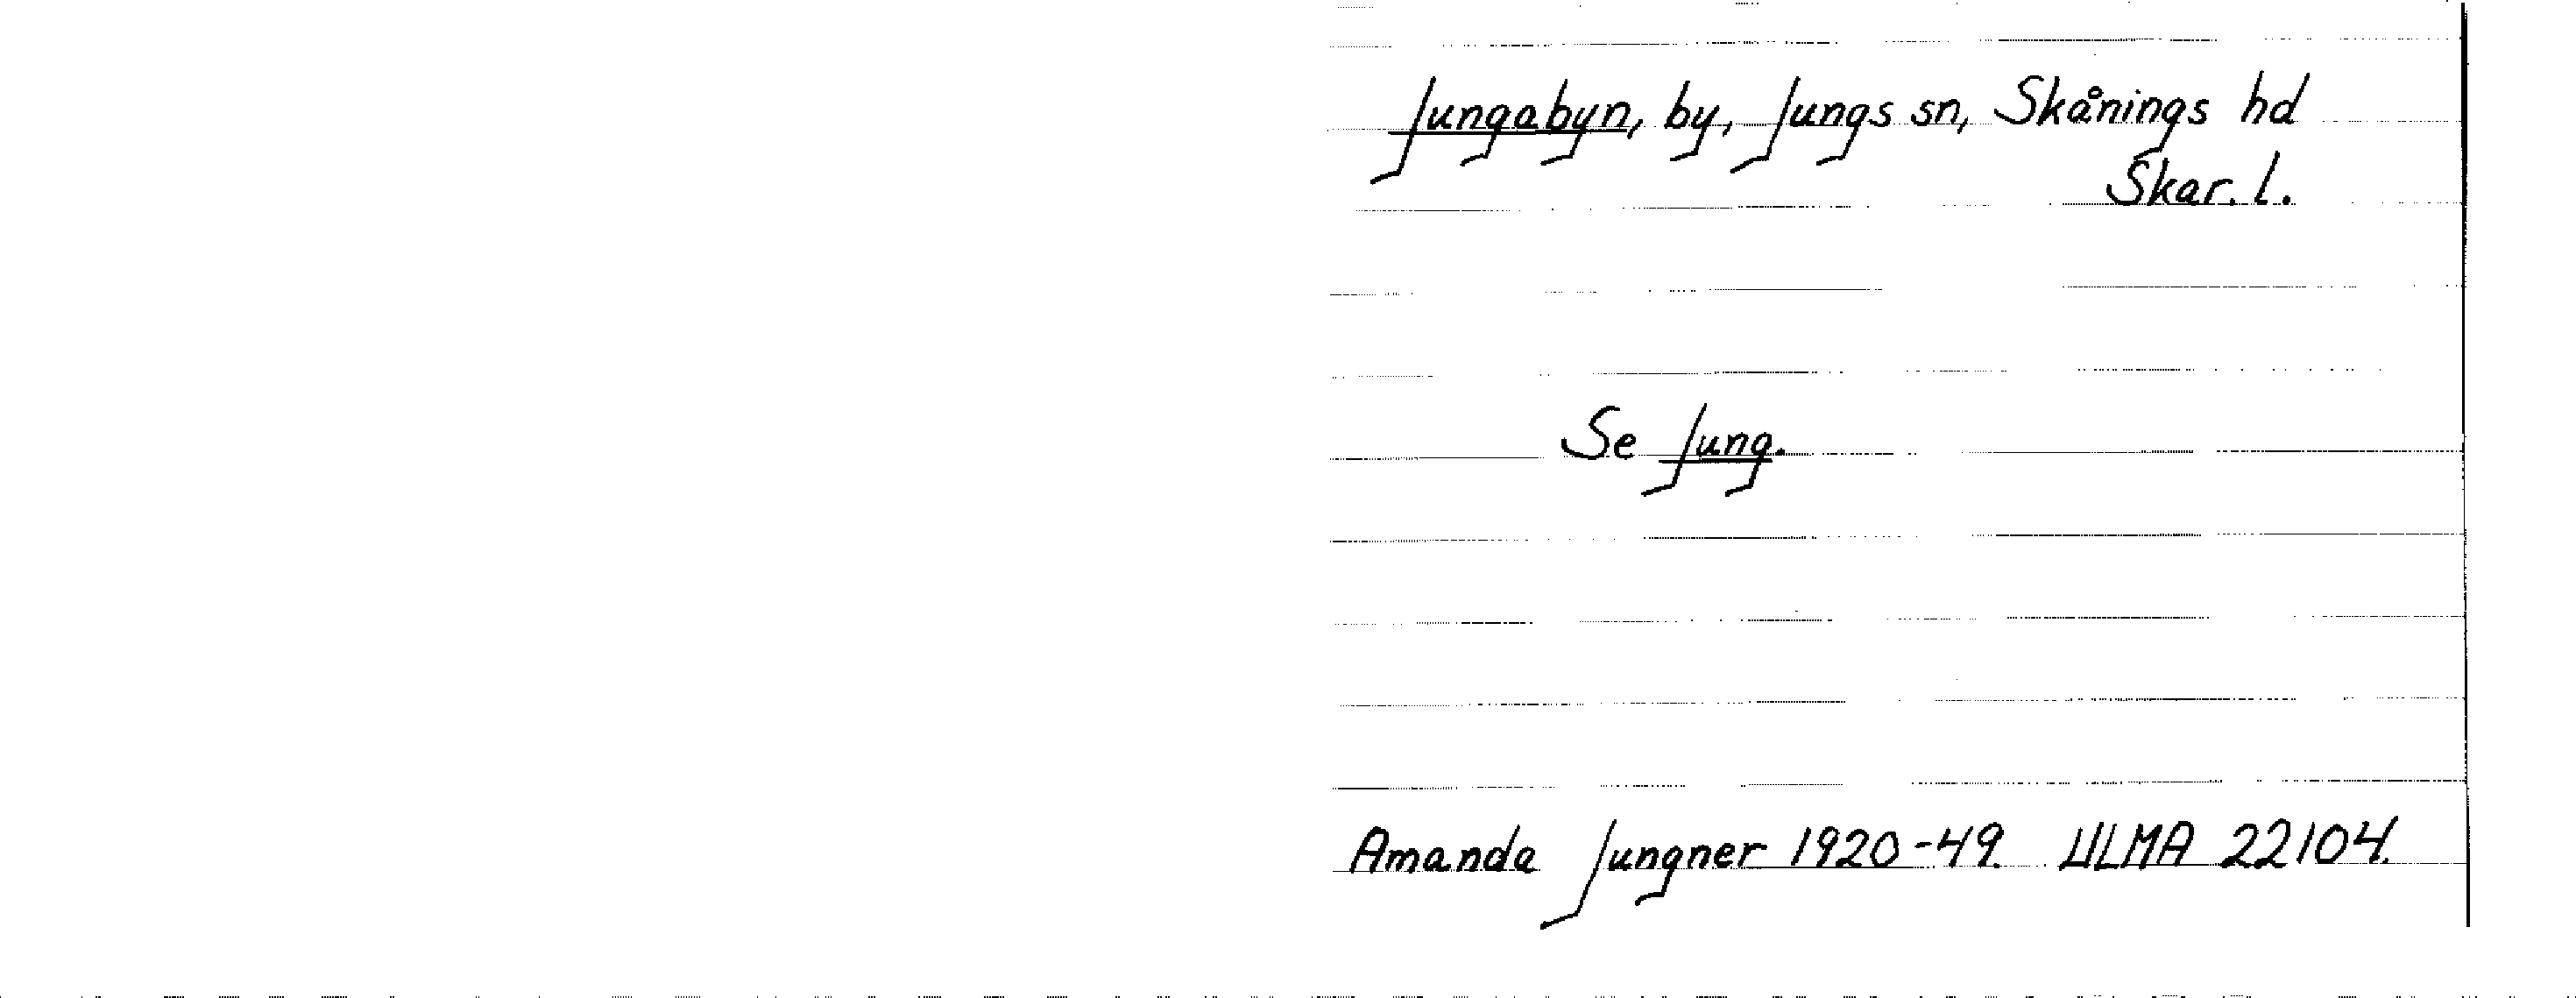 Jungabyn, by, Jungs sn, Skånings hd
Skar. l.
Se Jung.
Amanda Jungner 1920-49. ULMA 22104.